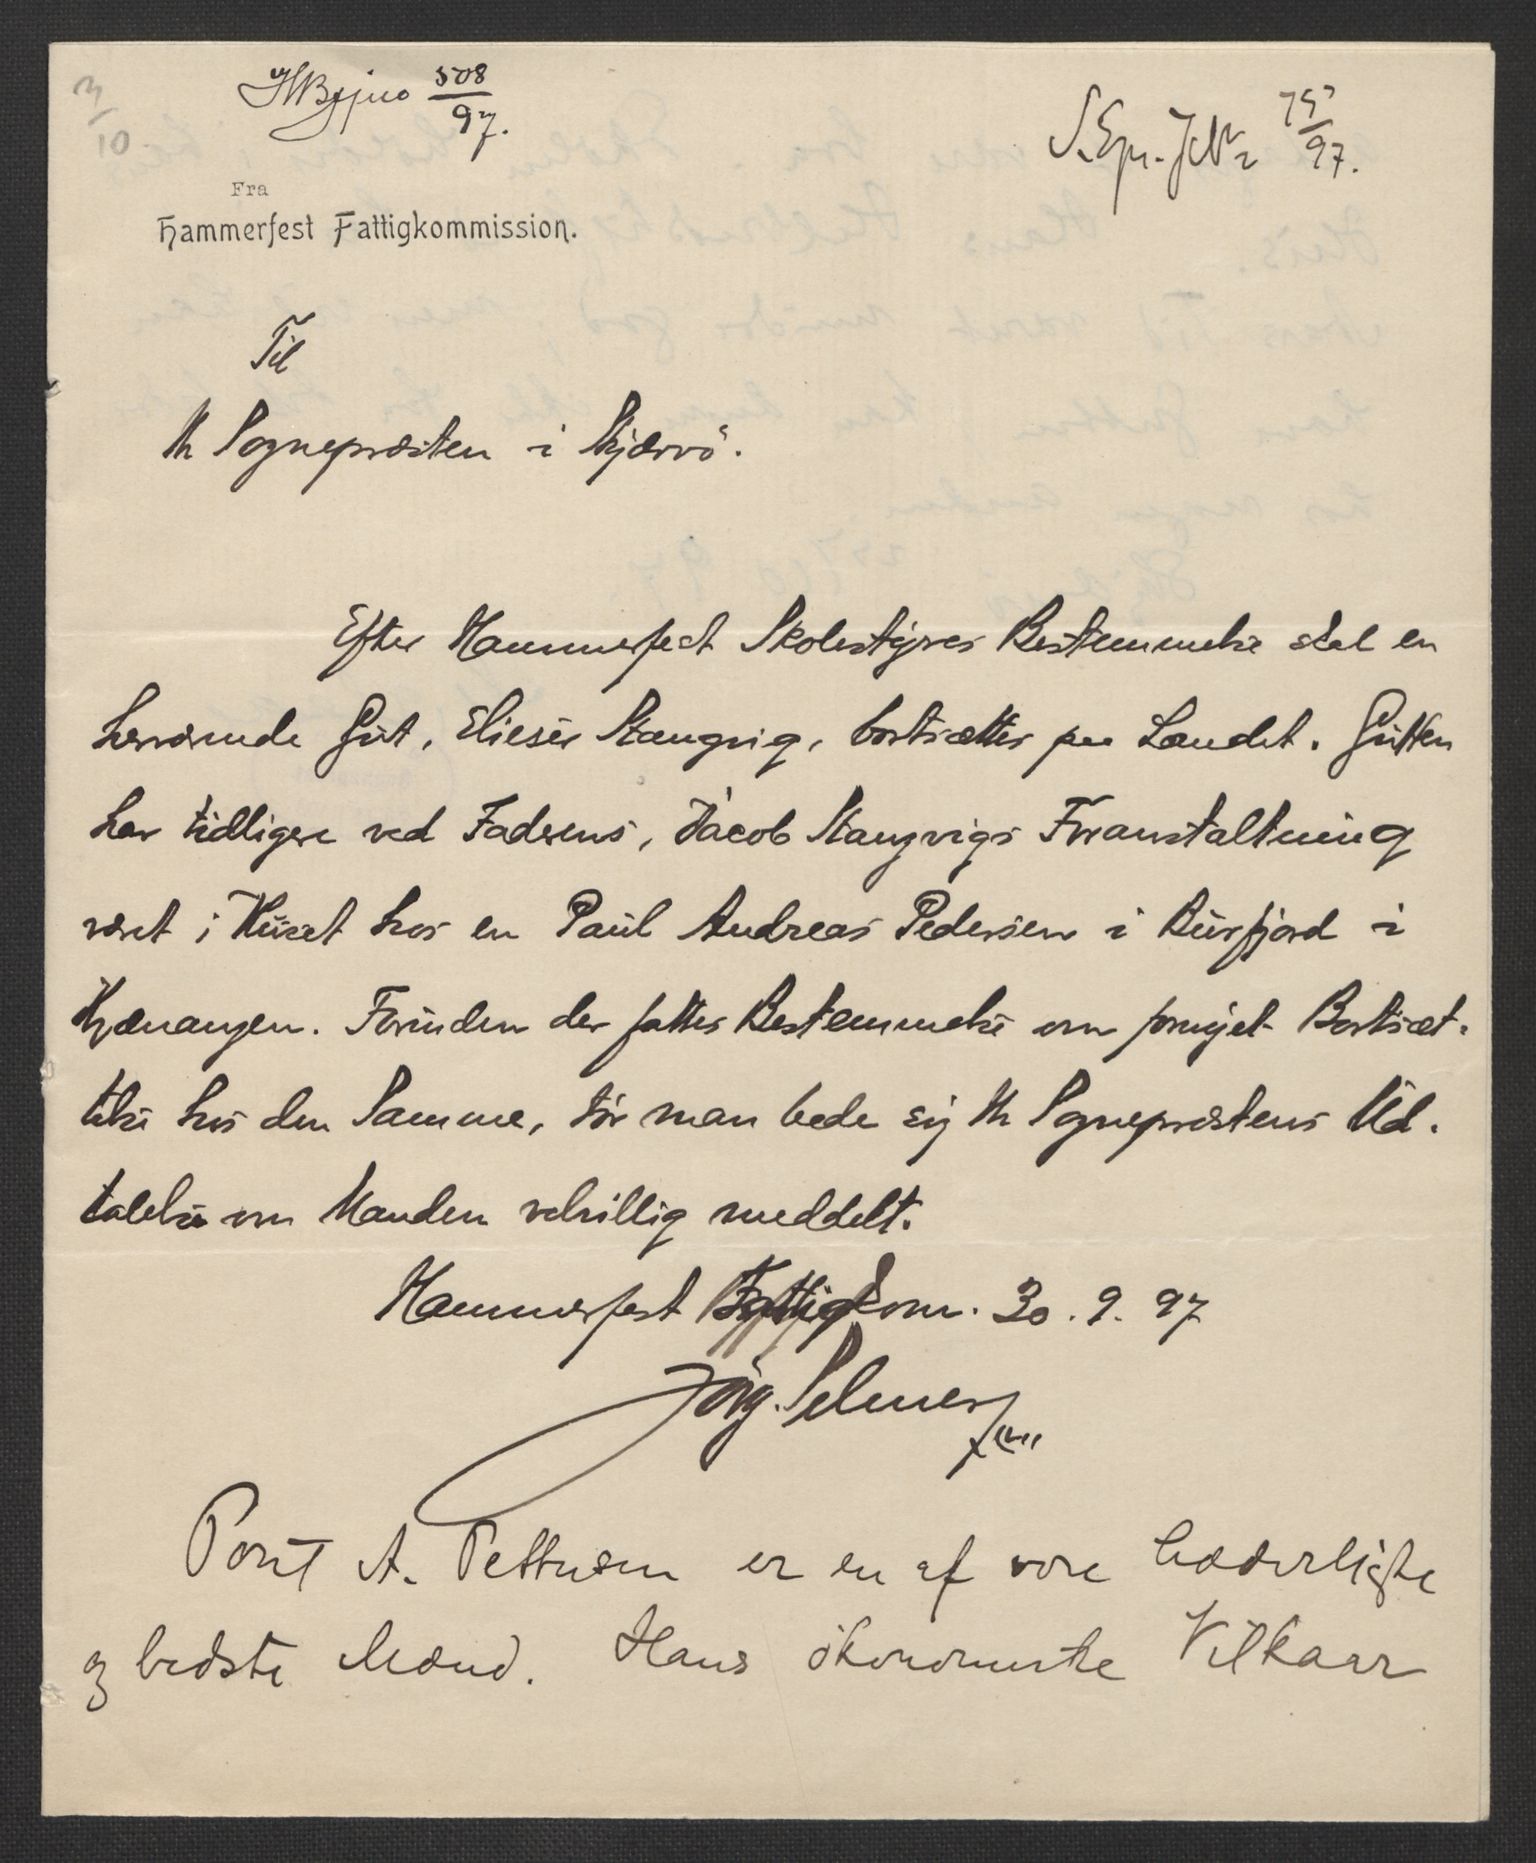 3/10
508/97.
S. Spr. J.Nr 75/97.
Fra
Hammerfest Fattigkommission.
Til
Hr Sognepræsten i Skjærvö.
Efter Hammerfest Skolestyres Bestemmelse skal en
herværende Gut, Elieser Stangvig, bortsættes paa Landet. Gutten
har tidligere ved Faderens, Jacob Stangvigs Foranstaltning
været i Huset hos en Paul Andreas Pedersen i Burfjord i
Kvænangen. Forinden der fattes Bestemmelse om fornyet Bortsæt-
telse hos den Samme, tør man bede sig Hr Sognepræstens Ud-
talelse om Manden velvillig meddelt.
Hammerfest Fattigkom. 30.9.97
Jörg. Selmer
Poul A. Pettersen er en af vore hæderligste
og bedste Mænd. Hans ökonomiske Vilkaar